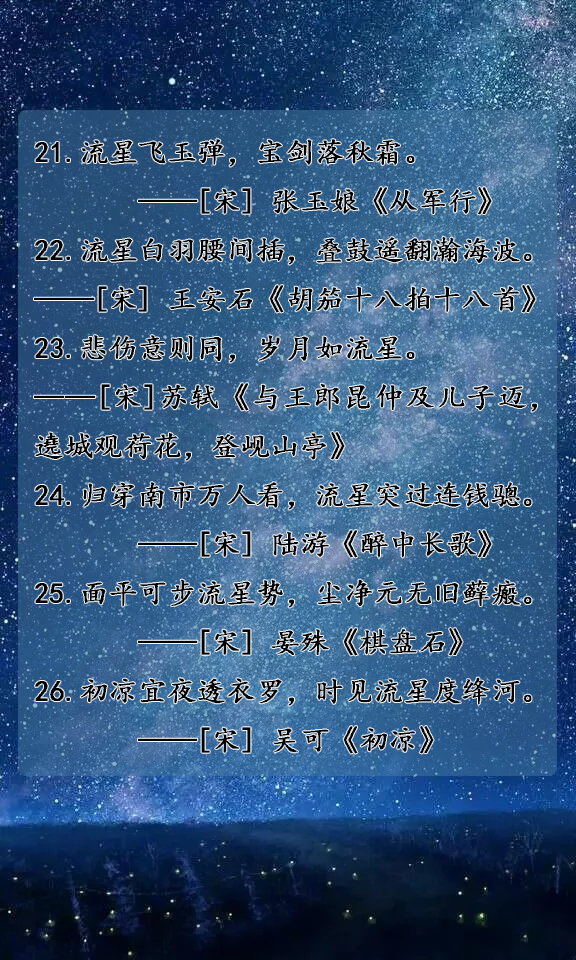 21.流星飞玉弹，宝剑落秋霜。
——[宋] 张玉娘《从军行》
22.流星白羽腰间插，叠鼓遥翻瀚海波。
——[宋] 王安石《胡笳十八拍十八首》
23.悲伤意则同，岁月如流星。
——[宋]苏轼《与王郎昆仲及儿子迈，
遶城观荷花，登岘山亭》
24.归穿南市万人看，流星突过连钱骢。
——[宋] 陆游《醉中长歌》
25.面平可步流星势，尘净元无旧藓瘢。
——[宋] 晏殊《棋盘石》
26.初凉宜夜透衣罗，时见流星度绛河。
——[宋] 吴可《初凉》